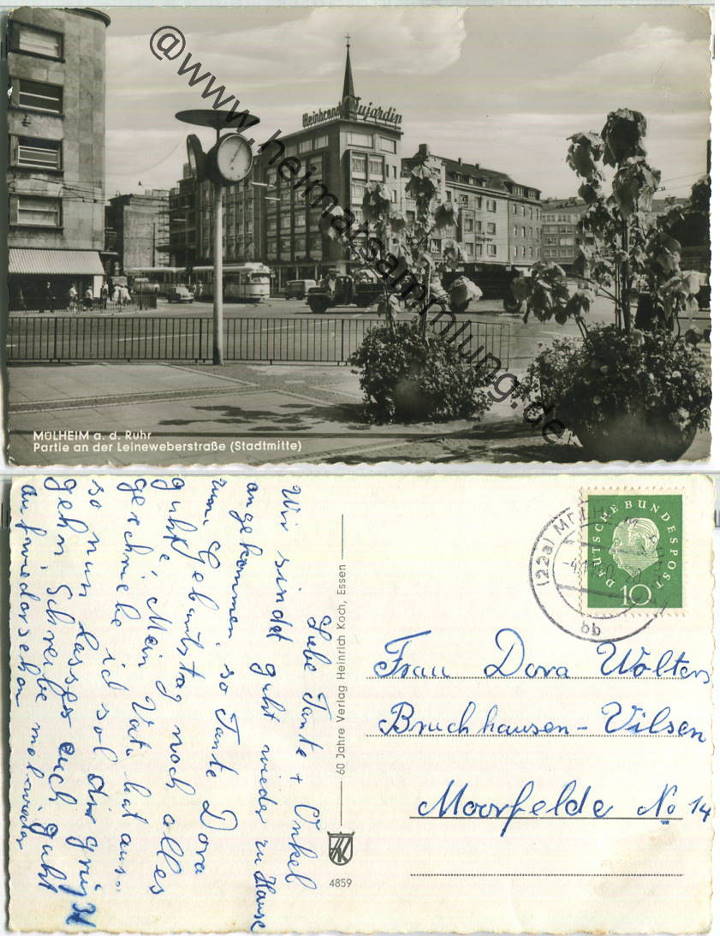 @www.heimatsammlung.de
Weinbrand Dujardin
MÜLHEIM a. d. Ruhr
Partie an der Leineweberstraße (Stadtmitte)
Liebe Tante + Onkel
Wir sindet guht wieder zu Hause
angekommen so Tante Dora
zum Geburtstag noch alles
guhte Mein Vater hat aus
geschriebe ich sol dir grüß
so nun lasses euch guht
gehn Schreibe mal wieder
auf wiedersehen
60 Jahre Verlag Heinrich Koch, Essen
4859
DEUTSCHE BUNDESPOST
10
(22a) MÜLHEIM
bb
Frau Dora Wolters
Bruchhausen-Vilsen
Moorfelde No 14